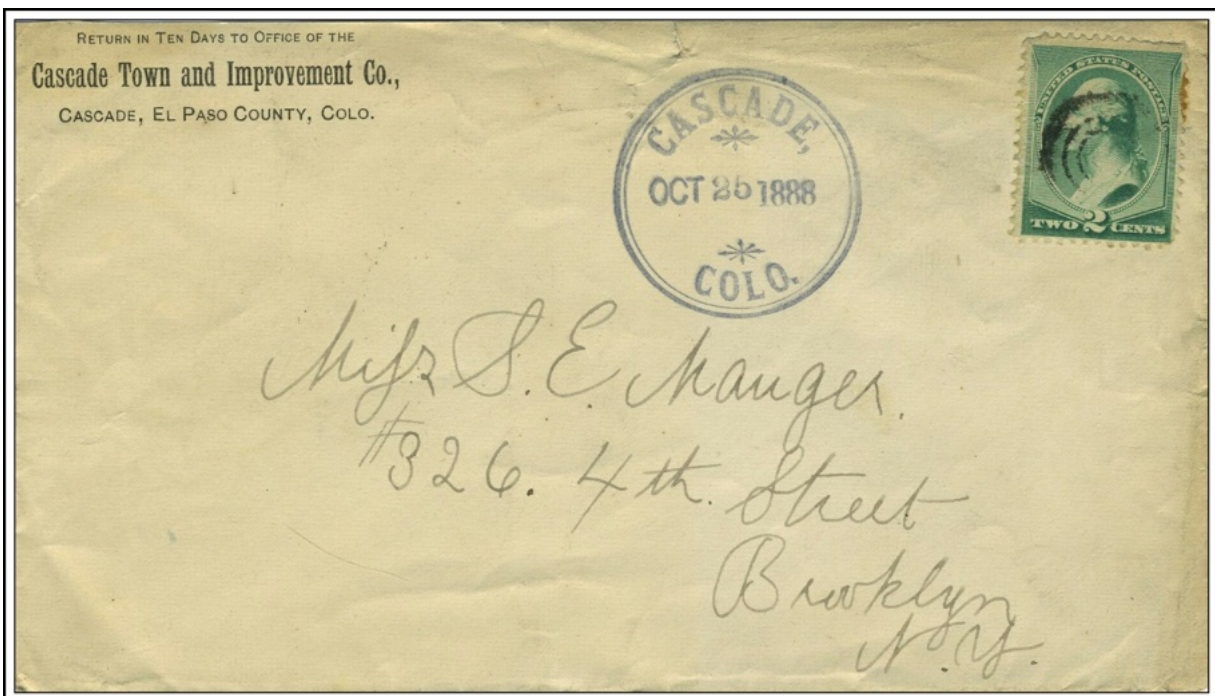 RETURN IN TEN DAYS TO OFFICE OF THE
Cascade Town and Improvement Co.,
CASCADE, EL PASO COUNTY, COLO.
CASCADE,
OCT 25 1888
COLO.
UNITED STATES POSTAGE
TWO 2 CENTS
Miss S. E. Mauger.
#326. 4th. Street
Brooklyn
N.Y.